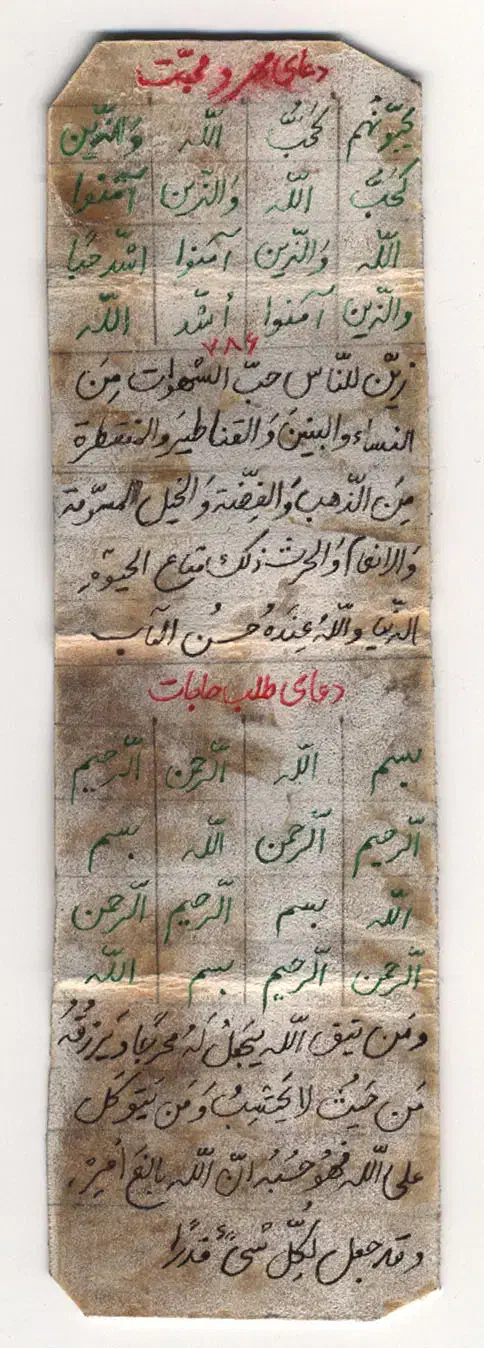 دعای مهر و محبّت
یحبّونهم کحُبّ اللّه وَالذّین
کحُبّ اللّه وَالذّین آمَنوا
اللّه وَالذّین آمَنوا اشّد حبًا
والذّین آمَنوا أشّد اللّه
۷۸۶
زیّن للنّاس حبّ الشهوات مِنَ
النساء والبنینَ وَالقناطیَر والمنقطرة
مِنَ الذّهب وَالفِضّة وَالخیل المسّومة
وَالانعام وَالحرث ذلک متاع الحیوةِ
الدّنیا واللّهُ عِندَهُ حُسنُ المآب
دعای طلب حاجات
بسم اللّه الّرحمن الّرحیم
الّرحیم الّرحمن اللّه بسم
اللّه بسم الّرحیم الّرحمن
الّرحمن الّرحیم بسم اللّه
ومَن یتق اللّه یَجعلُ لَهُ مخرجًا وَیَرزُقهُ
مَن حَیثُ لا یَحتسِبُ وَمَن یَتَوکَل
علی اللّه فهُو حَسُبُه انّ اللّه بالغَ اَمِرْهِ
وقد جعل لِکُلّ شیًٔ قدرًا